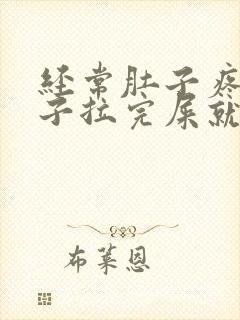 经常肚子疼
子拉完屎就
布莱恩